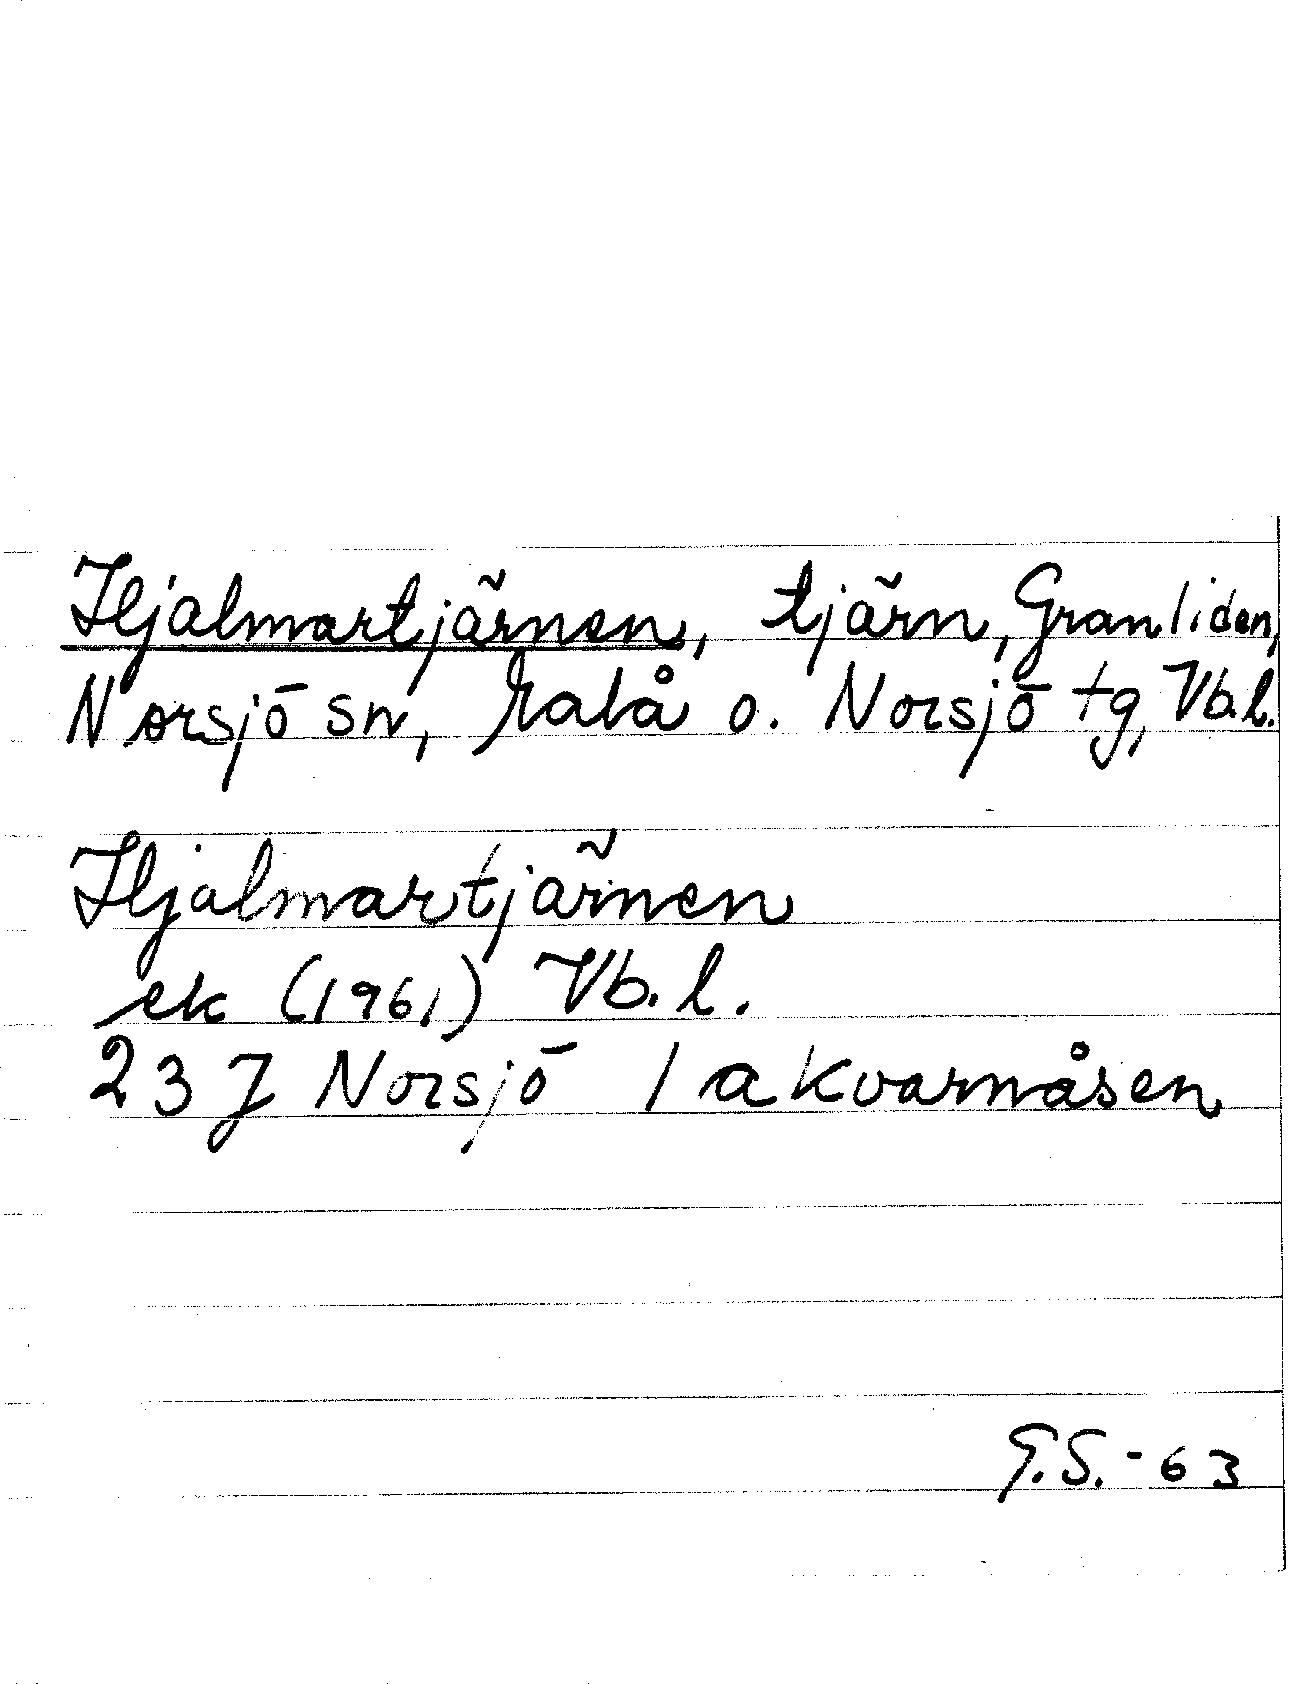 Hjalmartjärnen, tjärn, Granliden,
Norsjö sn, Malå o. Norsjö tg, Vb.l.
Hjalmartjärnen
ek (1961) Vb.l.
23 J Norsjö 1 a Kvarnåsen
G.S.-63